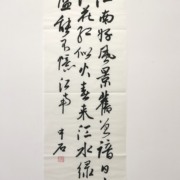 江南好風景舊曾諳日
江花紅似火春來江水綠
藍能不憶江南